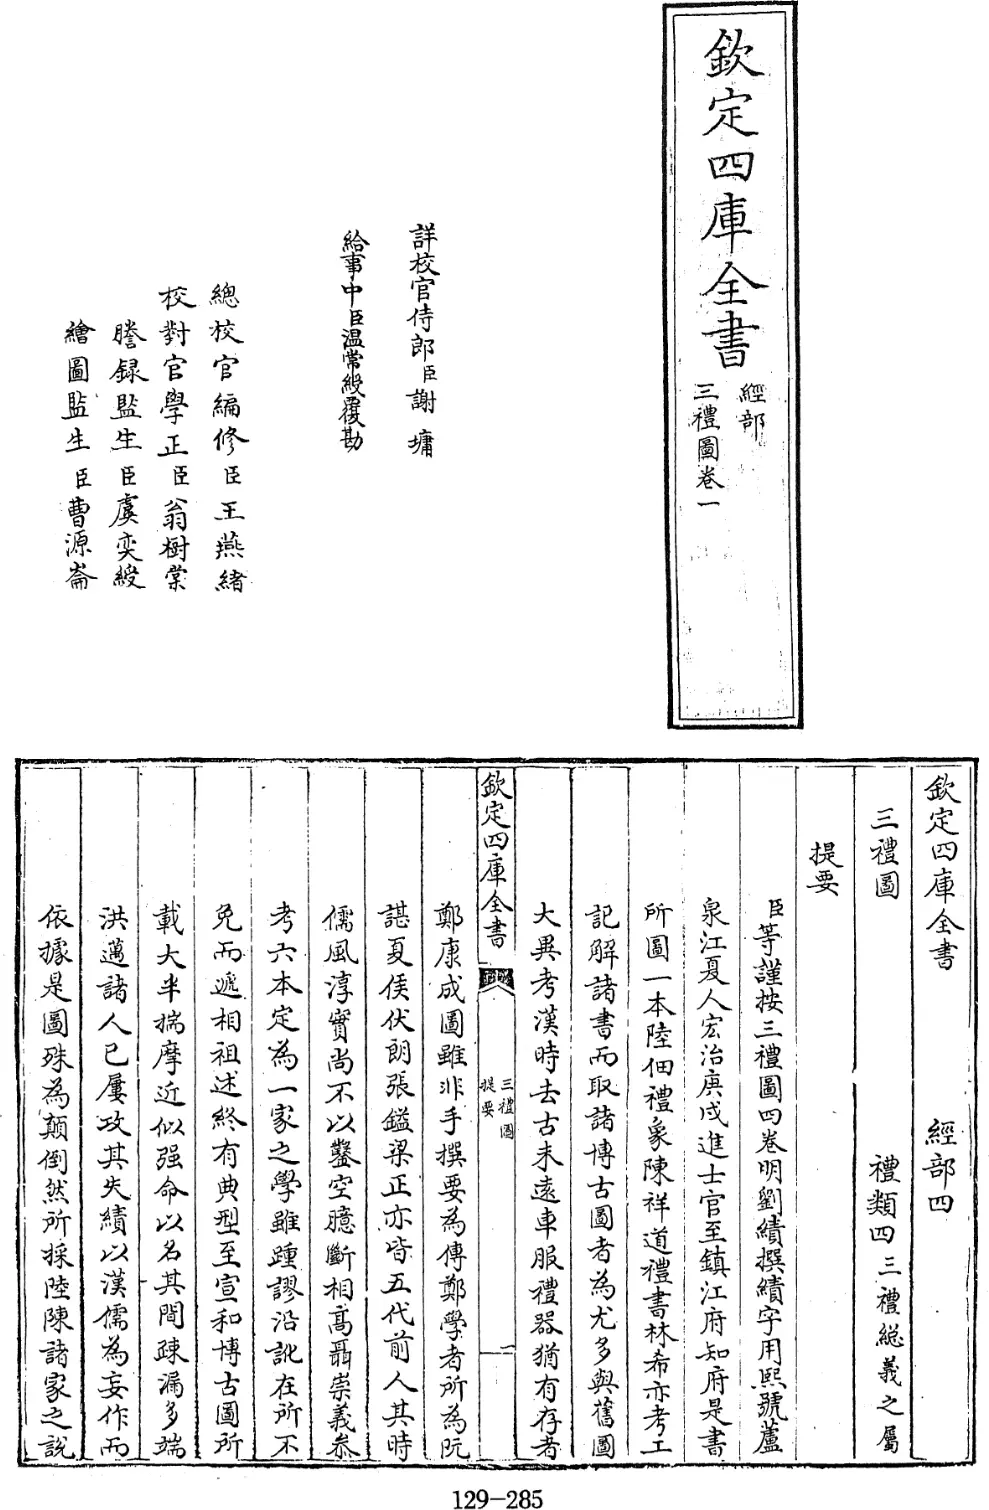 欽定四庫全書
經部
三禮圖卷一
詳校官侍郎臣謝墉
給事中臣温常綬覆勘
總校官編修臣王燕緒
校對官學正臣翁樹棠
謄録監生臣虞奕綬
繪圖監生臣曹源崙
欽定四庫全書 經部四
三禮圖 禮類四三禮總義之屬
提要
臣等謹按三禮圖四卷明劉績撰績字用熙號蘆
泉江夏人宏治庚戌進士官至鎮江府知府是書
所圖一本陸佃禮象陳祥道禮書林希亦考工
記解諸書而取諸博古圖者為尤多與舊圖
大異考漢時去古未遠車服禮器猶有存者
欽定四庫全書
三禮圖
提要
一
鄭康成圖雖非手撰要為傳鄭學者所為阮
諶夏侯伏朗張鎰梁正亦皆五代前人其時
儒風淳實尚不以鑿空臆斷相髙聶崇義叅
考六本定為一家之學雖踵謬沿訛在所不
免而遞相祖述終有典型至宣和博古圖所
載大半揣摩近似强命以名其間疎漏多端
洪邁諸人已屢攻其失績以漢儒為妄作而
依據是圖殊為顛倒然所採陸陳諸家之說
129-285